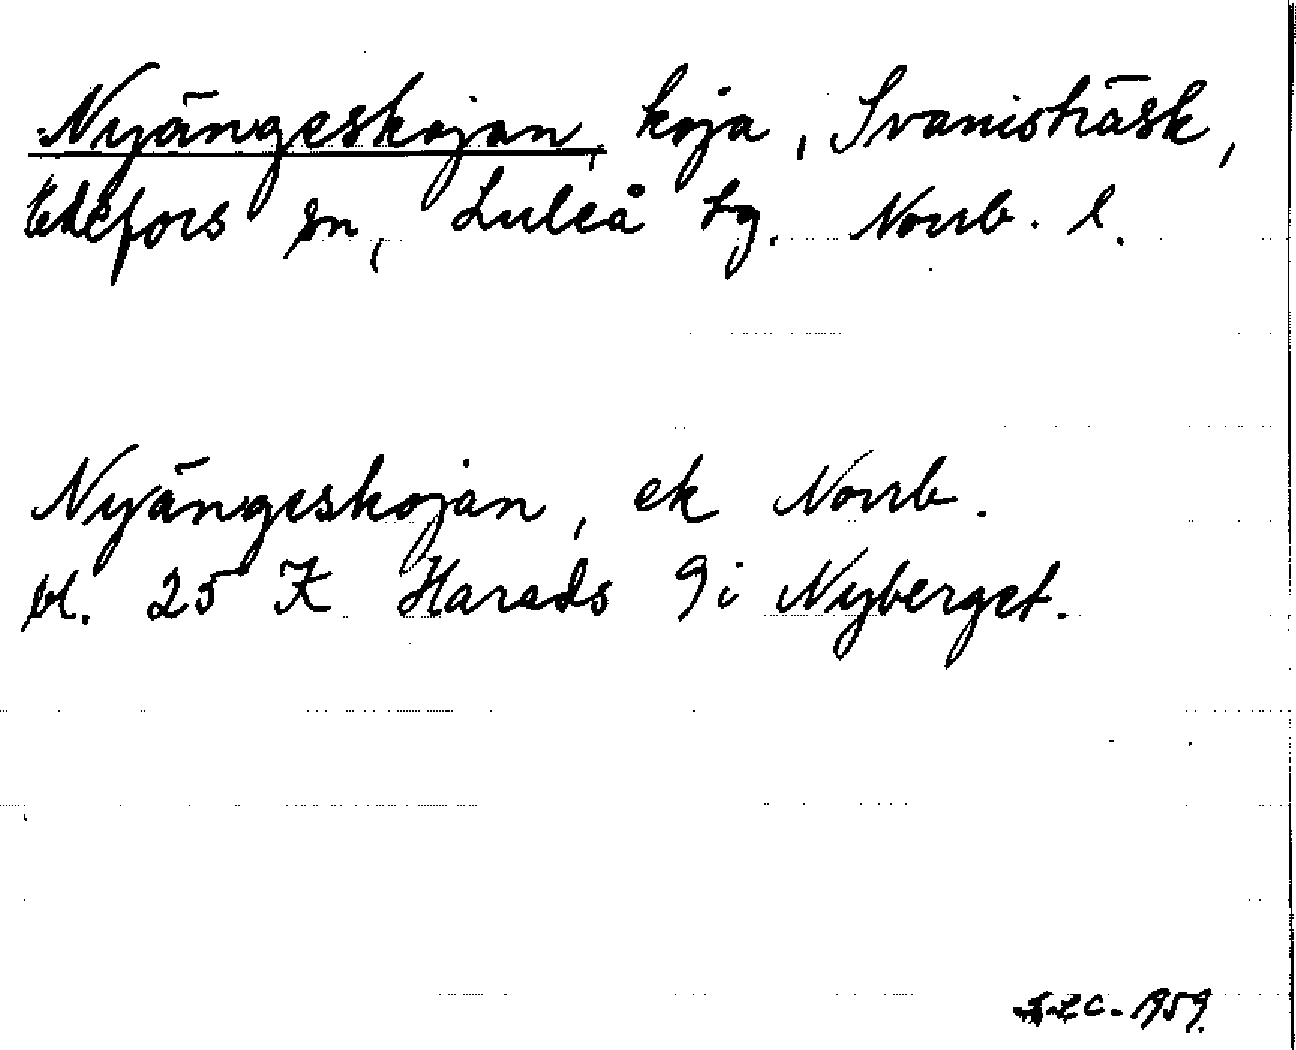 Nyängeskojan, koja, Svanisträsk,
Edefors sn, Luleå tg. Norrb. l.
Nyängeskojan, ek Norrb.
bl. 25 K Harads 9i Nyberget.
1959.